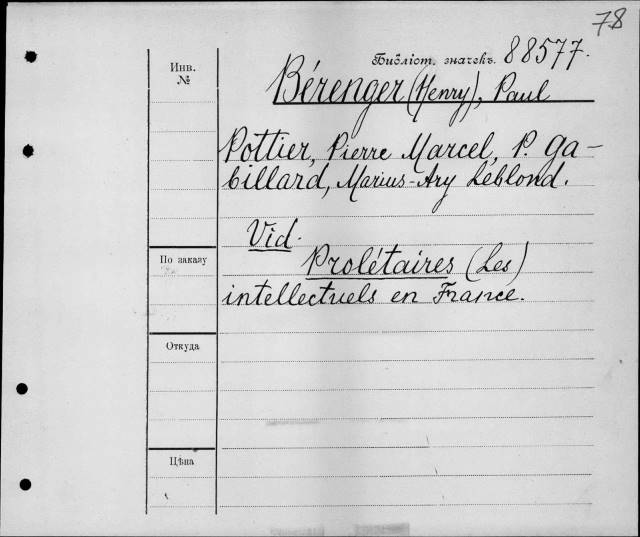 78
Инв.
№
Библіот. значекъ. 88577.
Bérenger (Henry), Paul
Pottier, Pierre Marcel, P. Ga-
billard, Marius-Ary Leblond.
Vid.
По заказу
Prolétaires (Les)
intellectuels en France.
Откуда
Цѣна